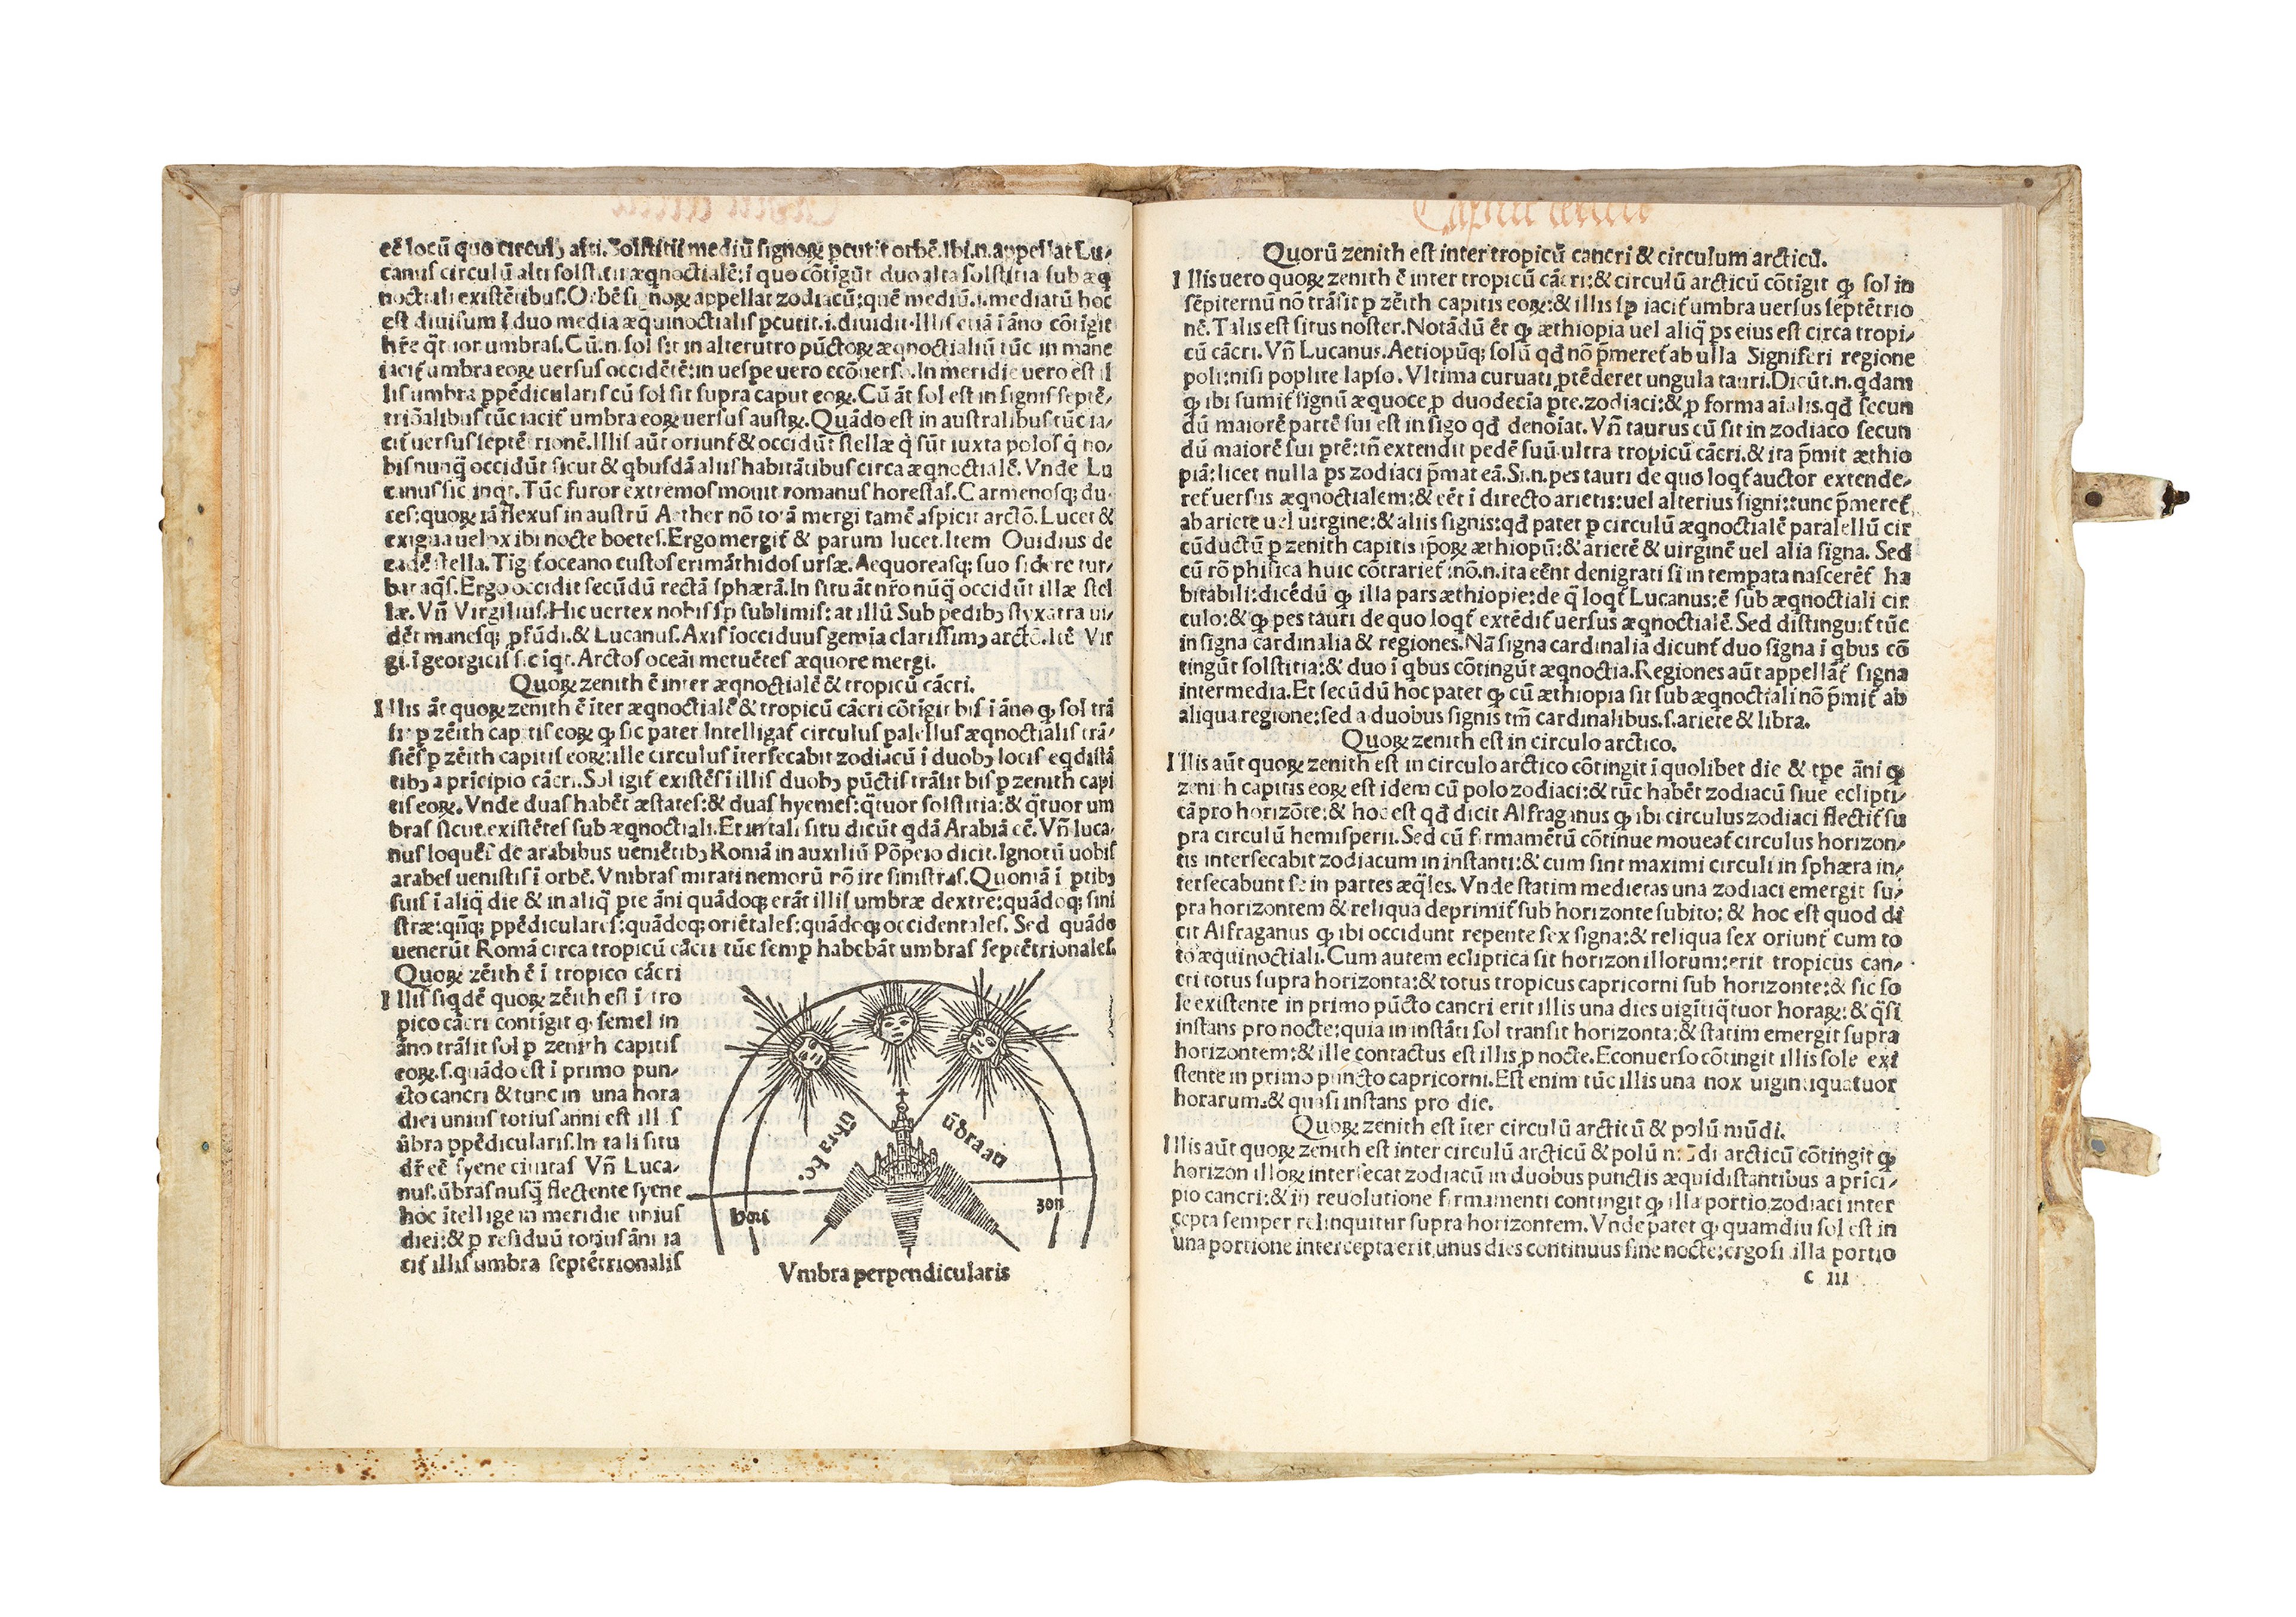 eē locū quo circulꝰ alti. Solstitii mediū signoꝝ ꝑcutit orbē. Ibi.n. appellat Lu/
canus circulū alti solstitii æqnoctialē: ī quo cōtigūt duo alta solstitia sub æq
noctiali existētibus. Orbē signoꝝ appellat zodiacū: quē mediū .i. mediatū hoc
est diuisum ī duo media æquinoctialis ꝑcutit .i. diuidit. Illis etiā ī āno cōtīgit
hr̄e q̄tuor umbras. Cū .n. sol sit in alterutro pūctoꝝ æqnoctialiū tūc in mane
iacit̄ umbra eoꝝ uersus occidētē: in uespe uero ecōuerso. In meridie uero est il
lis umbra ꝑpēdicularis cū sol sit supra caput eoꝝ. Cū āt sol est in signis septē/
triōalibus tūc iacit̄ umbra eoꝝ uersus austꝝ. Quādo est in australibus tūc ia/
cit̄ uersus septētrionē. Illis aūt oriunt̄ & occidūt stellæ q̄ sūt iuxta polos q̄ no/
bis nunq̄ occidūt sicut & qbusdā aliis habitātibus circa æqnoctialē. Vnde Lu
canus sic inqt. Tūc furor extremos mouit romanus horestas. Carmenosq; du/
ces: quoꝝ iā flexus in austrū Aether nō totā mergi tamē aspicit arctō. Lucet &
exigua uelox ibi nocte boetes. Ergo mergit̄ & parum lucet. Item Ouidius de
eadē stella. Tigit̄ oceano custos erimāthidos ursæ. Aequoreasq; suo sidere tur/
bat aq̄s. Ergo occidit secūdū rectā sphærā. In situ āt nr̄o nūq̄ occidūt illæ stel
læ. Vn̄ Virgilius. Hic uertex nobis sꝑ sublimis: at illū Sub pedibꝫ styx atra ui/
dēt manesq; ꝓfūdi. & Lucanus. Axis īocciduus gemīa clarissimꝰ arcto. Itē Vir
gi. ī georgicis sic īqt. Arctos oceāi metuētes æquore mergi.
Quoꝝ zenith ē inter æqnoctialē & tropicū cācri.
Illis āt quoꝝ zenith ē īter æqnoctialē & tropicū cācri cōtīgit bis ī āno ꝙ sol trā
sit ꝑ zēith capitis eoꝝ ꝙ sic patet Intelligat̄ circulus palellus æqnoctialis trā/
siēs ꝑ zēith capitis eoꝝ: ille circulus īterfecabit zodiacū ī duobꝫ locis eqdistā
tibꝫ a prīcipio cācri. Sol igit̄ existēs ī illis duobꝫ pūctis trāsit bis ꝑ zenith capi
tis eoꝝ. Vnde duas habēt æstates: & duas hyemes: q̄tuor solstitia: & q̄tuor um
bras sicut existētes sub æqnoctiali. Et in tali situ dicūt qdā Arabiā eē. Vn̄ luca/
nus loquēs de arabibus ueniētibꝫ Romā in auxiliū Pōpeio dicit. Ignotū uobis
arabes uenistis ī orbē. Vmbras mirati nemorū nō ire sinistras. Quoniā ī ꝑtibꝫ
suis ī aliq̄ die & in aliq̄ pte āni quādoq; erāt illis umbræ dextre: quādoq; sini
stræ: qn̄q; ꝑpēdiculares: quādoq; oriētales: quādoq; occidentales. Sed quādo
uenerūt Romā circa tropicū cācri tūc semꝑ habebāt umbras septētrionales.
Quoꝝ zēith ē ī tropico cācri
Illis siqdē quoꝝ zēith est ī tro
pico cācri contīgit ꝙ semel in
āno trāsit sol ꝑ zenith capitis
eoꝝ .s. quādo est ī primo pun/
cto cancri & tunc in una hora
diei unius totius anni est illis
ūbra ꝑpēdicularis. In tali situ
dr̄ eē syene ciuitas Vn̄ Luca/
nus. ūbras nusq̄ flectente syene
hoc ītellige in meridie unius
diei: & ꝑ residuū totius āni ia
cit̄ illis umbra septētrionalis
ūbra bo.
ūbra au
hori
zon
Vmbra perpendicularis
Capitulum tertium
Quorū zenith est inter tropicū cancri & circulum arcticū.
Illis uero quoꝝ zenith ē inter tropicū cācri: & circulū arcticū cōtīgit ꝙ sol in
sēpiternū nō trāsit ꝑ zēith capitis eoꝝ: & illis sꝑ iacit̄ umbra uersus septētrio
nē. Talis est situs noster. Notādū ēt ꝙ æthiopia uel aliq̄ ps eius est circa tropi/
cū cācri. Vn̄ Lucanus. Aetiopūq; solū qd̄ nō p̄meret̄ ab ulla Signiferi regione
poli: nisi poplite lapso. Vltima curuati ꝓtēderet ungula tauri. Dicūt .n. qdam
ꝙ ibi sumit̄ signū æquoce ꝓ duodecīa pte. zodiaci: & ꝓ forma aīalis. qd̄ secun
dū maiorē partē sui est in sigo qd̄ denoīat. Vn̄ taurus cū sit in zodiaco secun
dū maiorē sui ptē: tn̄ extendit pedē suū ultra tropicū cācri. & ita p̄mit æthio
piā: licet nulla ps zodiaci p̄mat eā. Si .n. pes tauri de quo loqt̄ auctor extende/
ret̄ uersus æqnoctialem: & eēt ī directo arietis: uel alterius signi: tunc p̄meret̄
ab ariete uel uirgine: & aliis signis: qd̄ patet ꝑ circulū æqnoctialē paralellū cir
cūductū ꝑ zenith capitis ip̄oꝝ æthiopū: & arietē & uirginē uel alia signa. Sed
cū rō phisica huic cōtrariet̄: nō .n. ita eēnt denigrati si in temperata nascerēt̄ ha
bitabili: dicēdū ꝙ illa pars æthiopie: de q̄ loqt̄ Lucanus: ē sub æqnoctiali cir
culo: & ꝙ pes tauri de quo loqt̄ extēdit̄ uersus æqnoctialē. Sed distinguit̄ tūc
in signa cardinalia & regiones. Nā signa cardinalia dicunt̄ duo signa ī qbus cō
tingūt solstitia: & duo ī qbus cōtingūt æqnoctia. Regiones aūt appellāt̄ signa
intermedia. Et secūdū hoc patet ꝙ cū æthiopia sit sub æqnoctiali nō p̄mit̄ ab
aliqua regione: sed a duobus signis tm̄ cardinalibus .s. ariete & libra.
Quoꝝ zenith est in circulo arctico.
Illis aūt quoꝝ zenith est in circulo arctico cōtingit ī quolibet die & tpe āni ꝙ
zenith capitis eoꝝ est idem cū polo zodiaci: & tūc habēt zodiacū siue eclipti/
cā pro horizōte: & hoc est qd̄ dicit Alfraganus ꝙ ibi circulus zodiaci flectit̄ su
pra circulū hemisperii. Sed cū firmamētū cōtīnue moueat̄ circulus horizon/
tis intersecabit zodiacum in instanti: & cum sint maximi circuli in sphæra in/
tersecabunt se in partes æq̄les. Vnde statim medietas una zodiaci emergit su/
pra horizontem & reliqua deprimit̄ sub horizonte subito: & hoc est quod di
cit Alfraganus ꝙ ibi occidunt repente sex signa: & reliqua sex oriunt̄ cum to
to æquinoctiali. Cum autem ecliptica sit horizon illorum: erit tropicus can/
cri totus supra horizonta: & totus tropicus capricorni sub horizonte: & sic so
le existente in primo pūcto cancri erit illis una dies uigīti q̄tuor horaꝝ: & q̄si
instans pro nocte: quia in instāti sol transit horizonta: & statim emergit supra
horizontem: & ille contactus est illis ꝓ nocte. Econuerso cōtingit illis sole exi
stente in primo puncto capricorni. Est enim tūc illis una nox uiginti quatuor
horarum: & quasi instans pro die.
Quoꝝ zenith est īter circulū arcticū & polū mūdi.
Illis aūt quoꝝ zenith est inter circulū arcticū & polū mūdi arcticū cōtingit ꝙ
horizon illoꝝ intersecat zodiacū in duobus punctis æquidistantibus a prīci/
pio cancri: & in reuolutione firmamenti contingit ꝙ illa portio zodiaci inter
cepta semper relinquitur supra horizontem. Vnde patet ꝙ quamdiu sol est in
una portione intercepta erit unus dies continuus sine nocte: ergo si illa portio
c iii